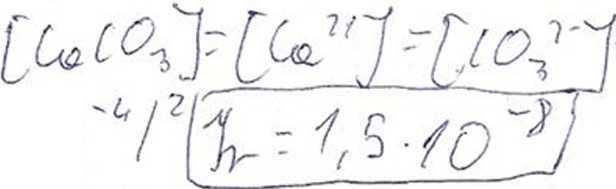 [CaCO₃] = [Ca²⁺] = [CO₃²⁻]
⁻⁴)² = 1,5·10⁻⁸